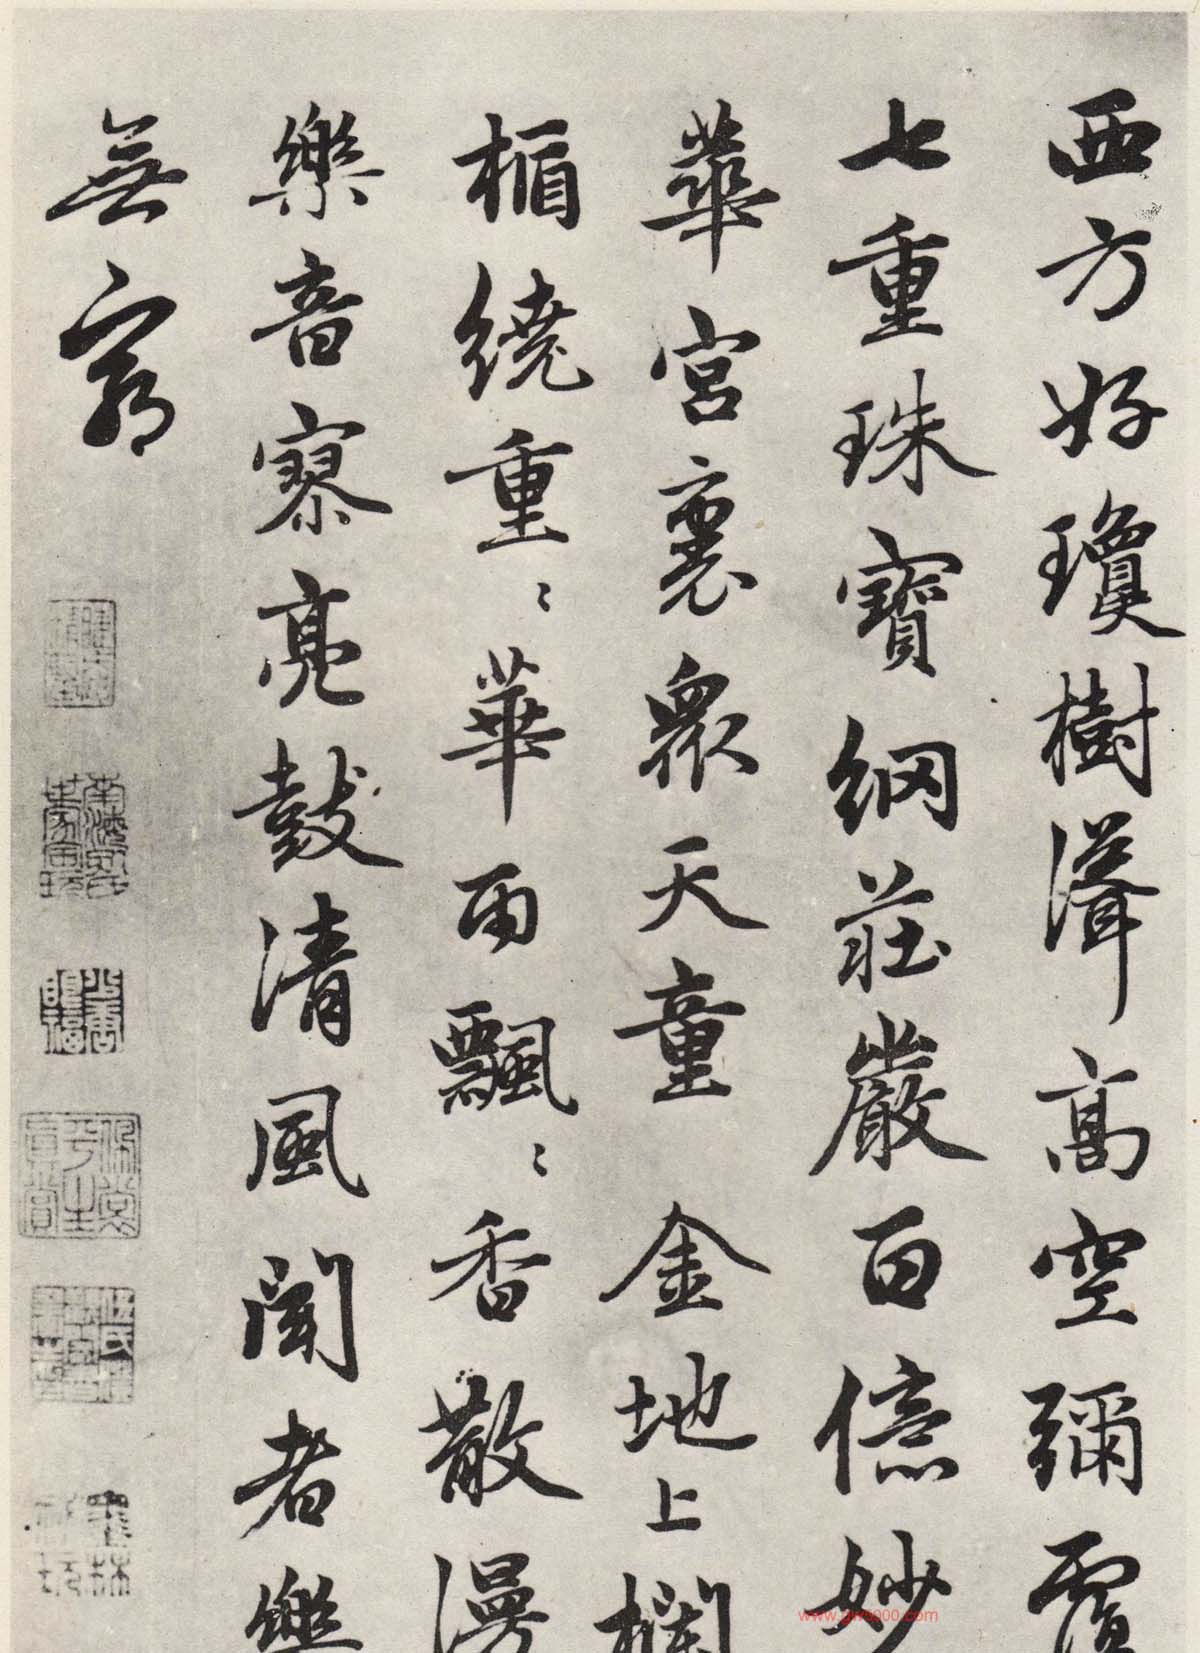 西方好瓊樹聳高空彌覆
七重珠寶網莊嚴百億妙
華宮裏眾天童金地上欄
楯繞重〻華雨飄〻香散漫
樂音寥亮鼓清風聞者樂
無窮
www.gw3000.com